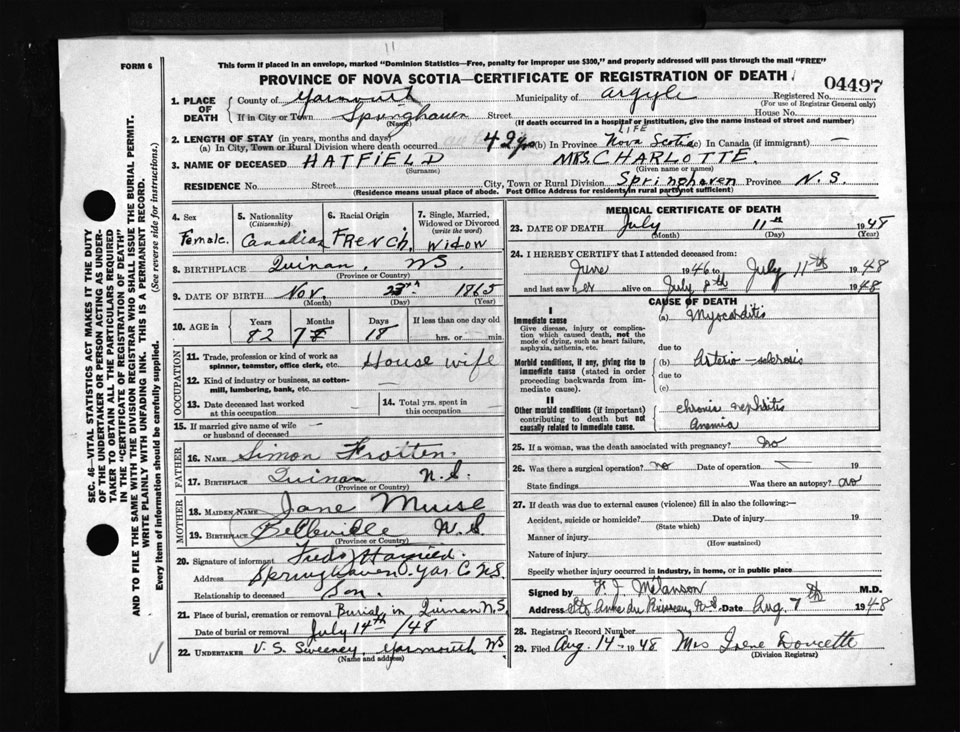 11
FORM 6
This form if placed in an envelope, marked "Dominion Statistics—Free, penalty for improper use $300," and properly addressed will pass through the mail "FREE"
PROVINCE OF NOVA SCOTIA—CERTIFICATE OF REGISTRATION OF DEATH
04497
1. PLACE OF DEATH { County of Yarmouth Municipality of Argyle Registered No.
(For use of Registrar General only)
If in City or Town Springhaven Street House No.
(Name) (If death occurred in a hospital or institution, give the name instead of street and number)
2. LENGTH OF STAY (in years, months and days)
LIFE
(a) In City, Town or Rural Division where death occurred 42 yrs (b) In Province Nova Scotia (c) In Canada (if immigrant) —
3. NAME OF DECEASED HATFIELD MRS. CHARLOTTE.
(Surname) (Given name or names)
RESIDENCE No. Street City, Town or Rural Division Springhaven Province N.S.
(Residence means usual place of abode. Post Office Address for residents in rural parts not sufficient)
4. Sex Female.
5. Nationality (Citizenship) Canadian
6. Racial Origin French
7. Single, Married, Widowed or Divorced (write the word) Widow
8. BIRTHPLACE Quinan, NS.
(Province or Country)
9. DATE OF BIRTH Nov. 23rd 1865
(Month) (Day) (Year)
10. AGE in Years Months Days If less than one day old
82 7 18 hrs. or min.
OCCUPATION
11. Trade, profession or kind of work as spinner, teamster, office clerk, etc. House wife
12. Kind of industry or business, as cotton-mill, lumbering, bank, etc. —
13. Date deceased last worked at this occupation
14. Total yrs. spent in this occupation
15. If married give name of wife or husband of deceased —
FATHER
16. Name Simon Frotten.
17. Birthplace Quinan N.S.
(Province or Country)
MOTHER
18. Maiden Name Jane Muise
19. Birthplace Belleville N.S
(Province or Country)
20. Signature of informant Fred Hatfield.
Address Springhaven. Yar. Co NS
Relationship to deceased Son.
21. Place of burial, cremation or removal Burial in Quinan N.S.
Date of burial or removal July 14th /48
22. UNDERTAKER V. S. Sweeney, Yarmouth NS
(Name and address)
MEDICAL CERTIFICATE OF DEATH
23. DATE OF DEATH July 11th 1948
(Month) (Day) (Year)
24. I HEREBY CERTIFY that I attended deceased from:
June 1946 to July 11th 1948
and last saw her alive on July 8th 1948
CAUSE OF DEATH
I
Immediate cause (a) Myocarditis
Give disease, injury or complication which caused death, not the mode of dying, such as heart failure, asphyxia, asthenia, etc. due to
Morbid conditions, if any, giving rise to immediate cause (stated in order proceeding backwards from immediate cause). (b) Arterio-sclerosis
due to
(c)
II
Other morbid conditions (if important) contributing to death but not causally related to immediate cause. chronic nephritis
Anemia
25. If a woman, was the death associated with pregnancy? no
26. Was there a surgical operation? no Date of operation 19
State findings Was there an autopsy? no
27. If death was due to external causes (violence) fill in also the following:—
Accident, suicide or homicide? Date of injury 19
(State which)
Manner of injury
(How sustained)
Nature of injury
Specify whether injury occurred in industry, in home, or in public place
Signed by F. J. Melanson M.D.
Address Ste Anne du Ruisseau, N.S. Date Aug. 7th 1948
28. Registrar's Record Number
29. Filed Aug. 14th 1948 Mrs Irene Doucette
(Division Registrar)
SEC. 46—VITAL STATISTICS ACT MAKES IT THE DUTY
OF THE UNDERTAKER OR PERSON ACTING AS UNDER-
TAKER TO OBTAIN ALL THE PARTICULARS REQUIRED
IN THE "CERTIFICATE OF REGISTRATION OF DEATH"
AND TO FILE THE SAME WITH THE DIVISION REGISTRAR WHO SHALL ISSUE THE BURIAL PERMIT.
WRITE PLAINLY WITH UNFADING INK. THIS IS A PERMANENT RECORD.
Every item of information should be carefully supplied. (See reverse side for instructions.)